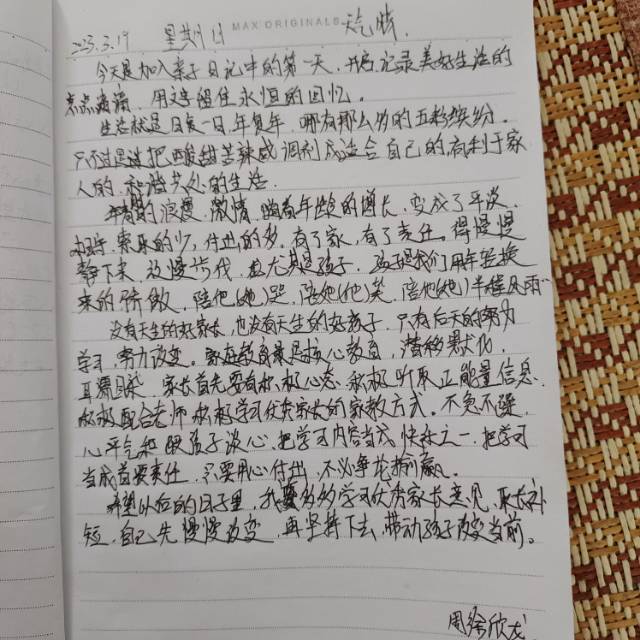 MAX ORIGINALS
23.3.19 星期日 天气晴
今天是加入亲子日记中的第一天,开启记录美好生活的
点点滴滴,用这留住永恒的回忆。
生活就是日复一日年复年,哪有那么多的五彩缤纷。
只不过是把酸甜苦辣咸调剂成适合自己的有利于家
人的,和谐共处的生活
的浪漫,激情,随着年龄的增长,变成了平淡
索取的少,付出的多,有了家,有了责任。得慢慢
静下来,放慢步伐,尤其是孩子,孩子是我们用年轻换
来的骄傲,陪他(她)哭,陪他(她)笑,陪他(她)半程风雨…
没有天生的好家长,也没有天生的好孩子,只有后天的努力
学习,努力改变。家庭教育就是核心教育,潜移默化,
耳濡目染,家长首先要有积极心态,积极听取正能量信息,
积极配合老师积极学习优秀家长的家教方式。不急不躁,
心平气和跟孩子谈心,把学习内容当成快乐之一,把学习
当成首要责任,只要用心付出,不必争论输赢。
希望以后的日子里,我要多多学习优秀家长意见,取长补
短,自己先慢慢改变,再坚持下去,带动孩子改变当前。
周绘欣